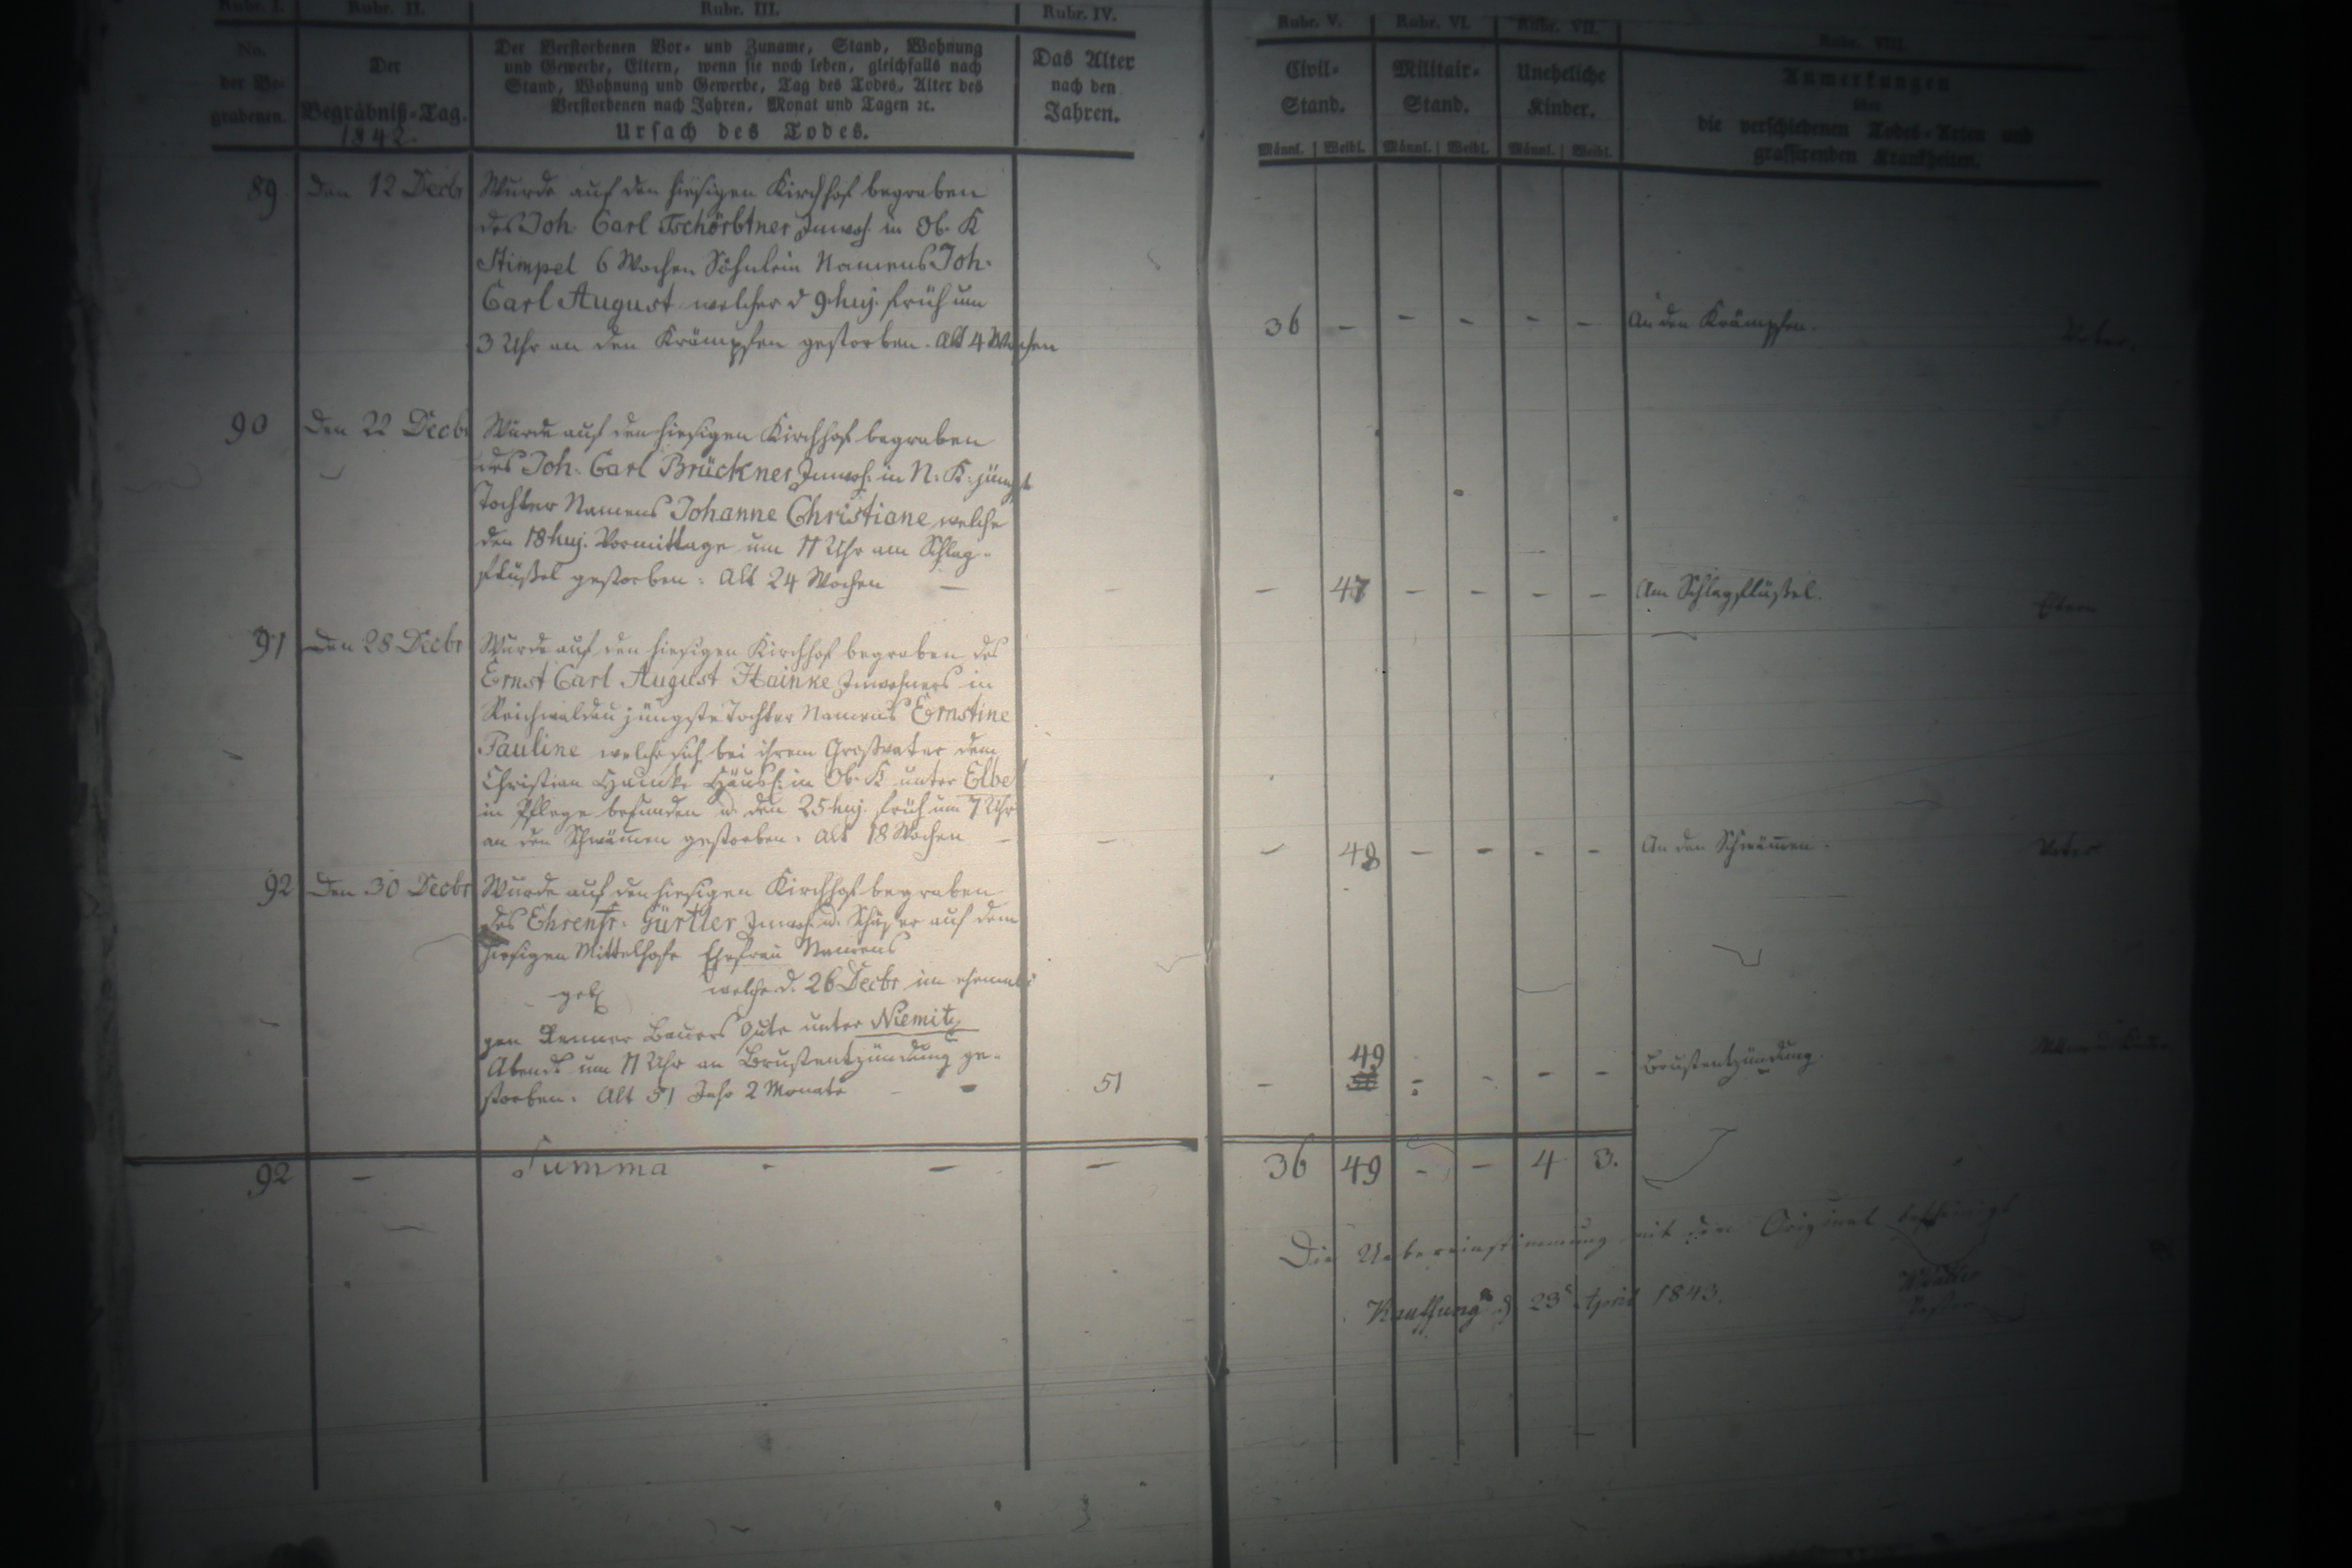 Rubr. I. Rubr. II. Rubr. III. Rubr. IV. Rubr. V. Rubr. VI. Rubr. VII. Rubr. VIII.
No.
der Be-
grabenen.
Der
Begräbniß-Tag.
1842.
Der Verstorbenen Vor- und Zuname, Stand, Wohnung
und Gewerbe, Eltern, wenn sie noch leben, gleichfalls nach
Stand, Wohnung und Gewerbe, Tag des Todes, Alter des
Verstorbenen nach Jahren, Monat und Tagen ꝛc.
Ursach des Todes.
Das Alter
nach den
Jahren.
Civil-
Stand.
Männl. Weibl.
Militair-
Stand.
Männl. Weibl.
Uneheliche
Kinder.
Männl. Weibl.
Anmerkungen
über
die verschiedenen Todes-Arten und
grassirenden Krankheiten.
89 Den 12 Decbr Wurde auf den hiesigen Kirchhof begraben
des Joh. Carl Tschörbtner Inwoh. in Ob. K
Stimpel 6 Wochen Söhnlein Namens Joh.
Carl August welcher d 9 huj. früh um
3 Uhr an den Krämpfen gestorben. Alt 4 Wochen
36 - - - - - An den Krämpfen.
Vater.
90 Den 22 Decbr Wurde auf den hiesigen Kirchhof begraben
des Joh. Carl Brückner Inwoh. in N. K. jüngst
Tochter Namens Johanne Christiane welche
den 18 huj. Vormittags um 11 Uhr am Schlag-
flüßel gestorben. Alt 24 Wochen -
- - 47 - - - - Am Schlagflüßel.
Eltern
91 Den 28 Decbr Wurde auf den hiesigen Kirchhof begraben des
Ernst Carl August Hainke Inwohners in
Reichwaldau jüngste Tochter Namens Ernstine
Pauline welche sich bei ihrem Großvater dem
Christian Hainke Häusl. in Ob. K unter Elbe
in Pflege befunden u. den 25 huj. früh um 7 Uhr
an den Schwämen gestorben. Alt 18 Wochen -
- - 48 - - - - An den Schwämen.
Vater
92 Den 30 Decbr Wurde auf den hiesigen Kirchhof begraben
des Ehrenfr. Gürtler Inwoh. u. Schäfer auf dem
hiesigen Mittelhofe Ehefrau Namens
geb welche d. 26 Decbr im ehemali
gen Renner Bauers Gute unter Niemitz
Abends um 11 Uhr an Brustentzündung ge-
storben. Alt 51 Jahr 2 Monate - -
51 - 49 - - - - Brustentzündung.
92 - Summa - - - 36 49 - - 4 3.
Die Uebereinstimmung mit dem Original bescheinigt
Kauffung d 23 April 1843.